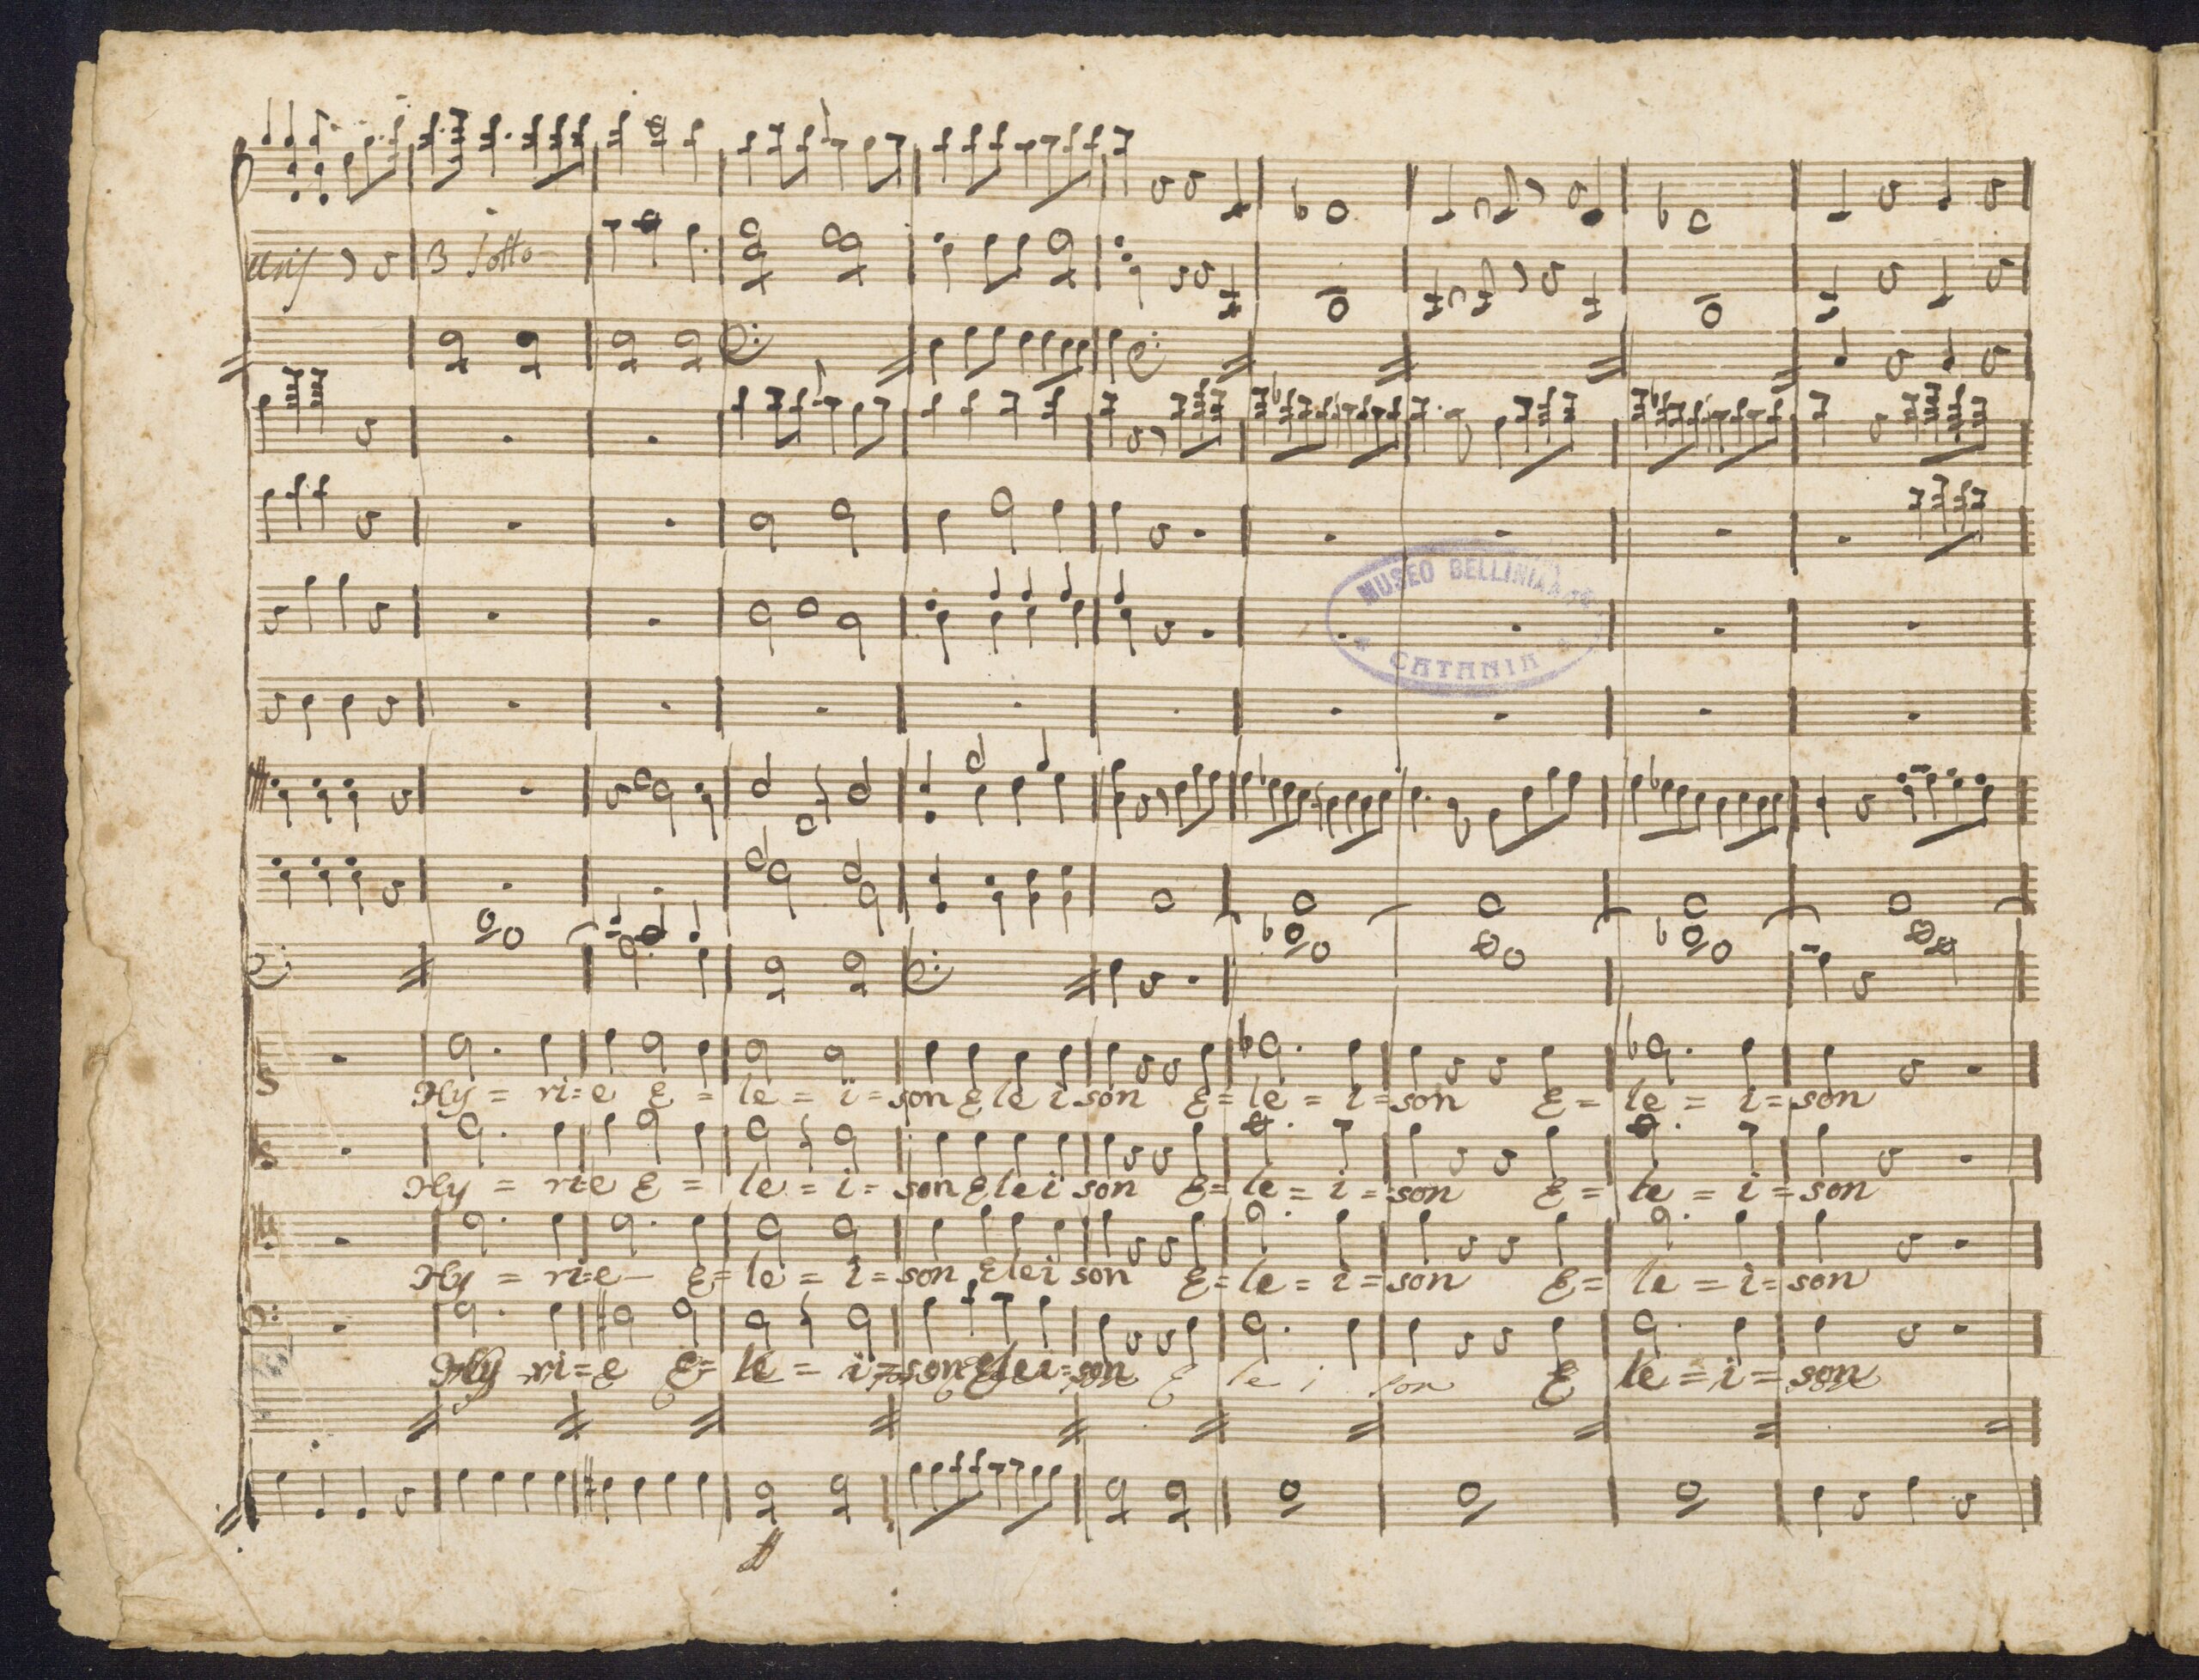 unis 3 sotto
MUSEO BELLINIANO
CATANIA
Ky = ri = e E = le = i = son E le i son E = le = i = son E = le = i = son
Ky = ri = e E = le = i = son E le i son E = le = i = son E = le = i = son
Ky = ri = e – E = le = i = son E le i son E = le = i = son E = le = i = son
Ky ri = e E = le = i = son E le i = son E le i son E le = i = son